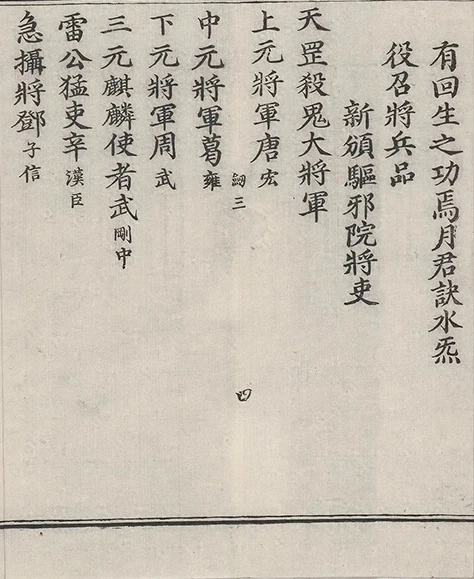 有回生之功焉月君訣水炁
役召將兵品
新頒驅邪院將吏
天罡殺鬼大將軍
上元將軍唐宏
劒三
四
中元將軍葛雍
下元將軍周武
三元麒麟使者武剛中
雷公猛吏辛漢臣
急攝將鄧子信